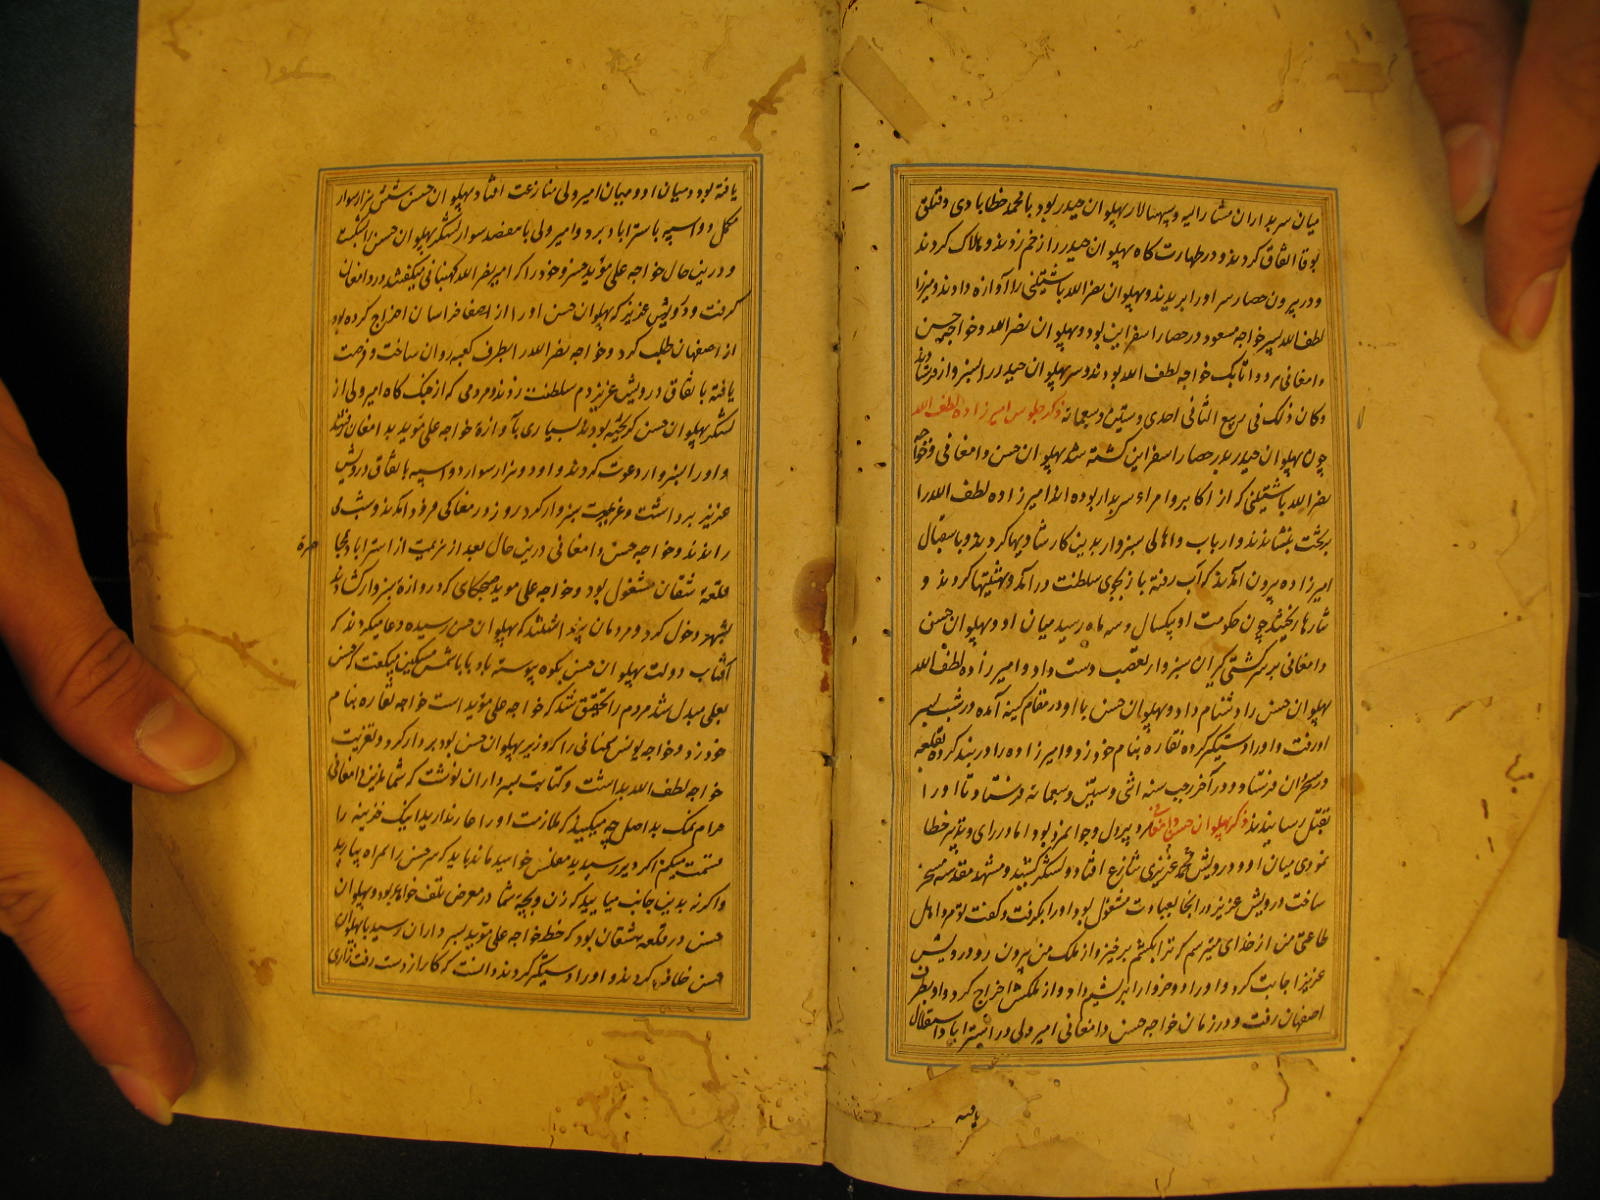 میان سربداران مشارالیه و سپهسالار پهلوان حیدر بود با محمد خطابادی و قتلق
بوقا اتفاق کردند و در طهارت کاه پهلوان حیدر را زخم زدند و هلاک کردند
و در بیرون حصار سر او را بریدند و پهلوان نصرالله باشتینی را آوازه دادند و میرزا
لطف الله پسر خواجه مسعود در حصار اسفراین بود و پهلوان نصرالله و خواجه حسن
دامغانی هر دو اتابک خواجه لطف الله بودند و سر پهلوان حیدر را بسبزوار فرستادند
و کان ذلک فی ربیع الثانی احدی و ستین و سبعمائه ذکر جلوس امیرزاده لطف الله
چون پهلوان حیدر در حصار اسفراین کشته شد پهلوان حسن دامغانی و خواجه
نصرالله باشتینی که از اکابر و امراء سربدار بوده اند امیرزاده لطف الله را
بر تخت بنشاندند و ارباب و اهالی سبزوار بدین کار شادیها کردند و باستقبال
امیرزاده بیرون آمدند که آب رفته باز بجوی سلطنت در آمد و تهنیتها کردند و
نثارها ریختند چون حکومت او یکسال و سه ماه رسید میان او و پهلوان حسن
دامغانی بر سر کشتی کیران سبزوار تعصب دست داد و امیرزاده لطف الله
پهلوان حسن را دشنام داد و پهلوان حسن با او در مقام کینه آمده در شب بسر
او رفت و او را دستکیر کرده نقاره بنام خود زد و امیرزاده را در بند کرده بقلعه
فرستاد و در آخر رجب سنه اثنی و ستین و سبعمائه فرستاد تا او را
بقتل رسانیدند ذکر پهلوان حسن دامغانی مرد پردل و جوانمرد بود اما در رای و تدبیر خطا
نمودی میان او و درویش محمد عزیزی تنازع افتاد و لشکر کشید و مشهد مقدسه مسخر
ساخت درویش عزیز در آنجا بعبادت مشغول بود او را بکرفت و کفت تو مرد اهل
طاعتی من از خدای میترسم که ترا بکشم برخیز و از ملک من بیرون رو درویش
عزیز اجابت کرد و او را دو خروار ابریشم داد و از ملکش اخراج کرد و او بطرف
اصفهان رفت و در زمان خواجه حسن دامغانی امیر ولی در استراباد استقلال
یافته
یافته بود و میان او و میان امیر ولی منازعت افتاد پهلوان حسن شش هزار سوار
مکمل دو اسپه باستراباد برد و امیر ولی با سوار لشکر پهلوان حسن را بشکست
و درین حال خواجه علی مؤید خود را که امیر نصرالله میکفتند در دامغان
کرفت و درویش عزیز که پهلوان حسن او را از خراسان اخراج کرده بود
از اصفهان طلب کرد و خواجه نصرالله را بطرف کعبه روان ساخت و فرصت
یافته با تفاق درویش عزیز دم سلطنت زدند و مردمی که از جنک کاه امیر ولی از
لشکر پهلوان حسن کریخته بودند بسیاری بآوازه خواجه علی مؤید بدامغان رفتند
و او را بسبزوار دعوت کردند و او دو هزار سوار دو اسپه باتفاق درویش
عزیز برداشت و عزیمت سبزوار کرد روز در مغاکی فرود آمدند و شب می
راندند و خواجه حسن دامغانی درین حال بعد از هزیمت از استراباد بمحاصره
قلعه شقان مشغول بود و خواجه علی موید صبحکاهی که دروازه سبزوار کشادند
بشهر دخول کرد و مردمان پنداشتند که پهلوان حسن رسیده دعا میکردند که
آفتاب دولت پهلوان حسن بکوه پیوسته باد بابا شمس مسکین میکفت که حسن
بعلی مبدل شد مردم را تحقیق شد که خواجه علی مؤید است خواجه نقاره بنام
خود زد و خواجه یونس سمنانی را که وزیر پهلوان حسن بود بر دار کرد و تعزیت
خواجه لطف الله بداشت و کتابت بسرداران نوشت که شما این دامغانی
حرام نمک بد اصل چه میکنید که ملازمت او را عار ندارید اینک خزینه را
قسمت میکنم اکر دیر رسید مفلس خواهید ماند باید که سر حسن را همراه بیارید
و اکر نه بدین جانب میایید که زن و بچه شما در معرض تلف خواهد بود و پهلوان
حسن در قلعه شقان بود که خط خواجه علی مؤید بسرداران رسید با پهلوان
حسن خلاف کردند و او را دستکیر کردند دانست که کار از دست رفت زاری